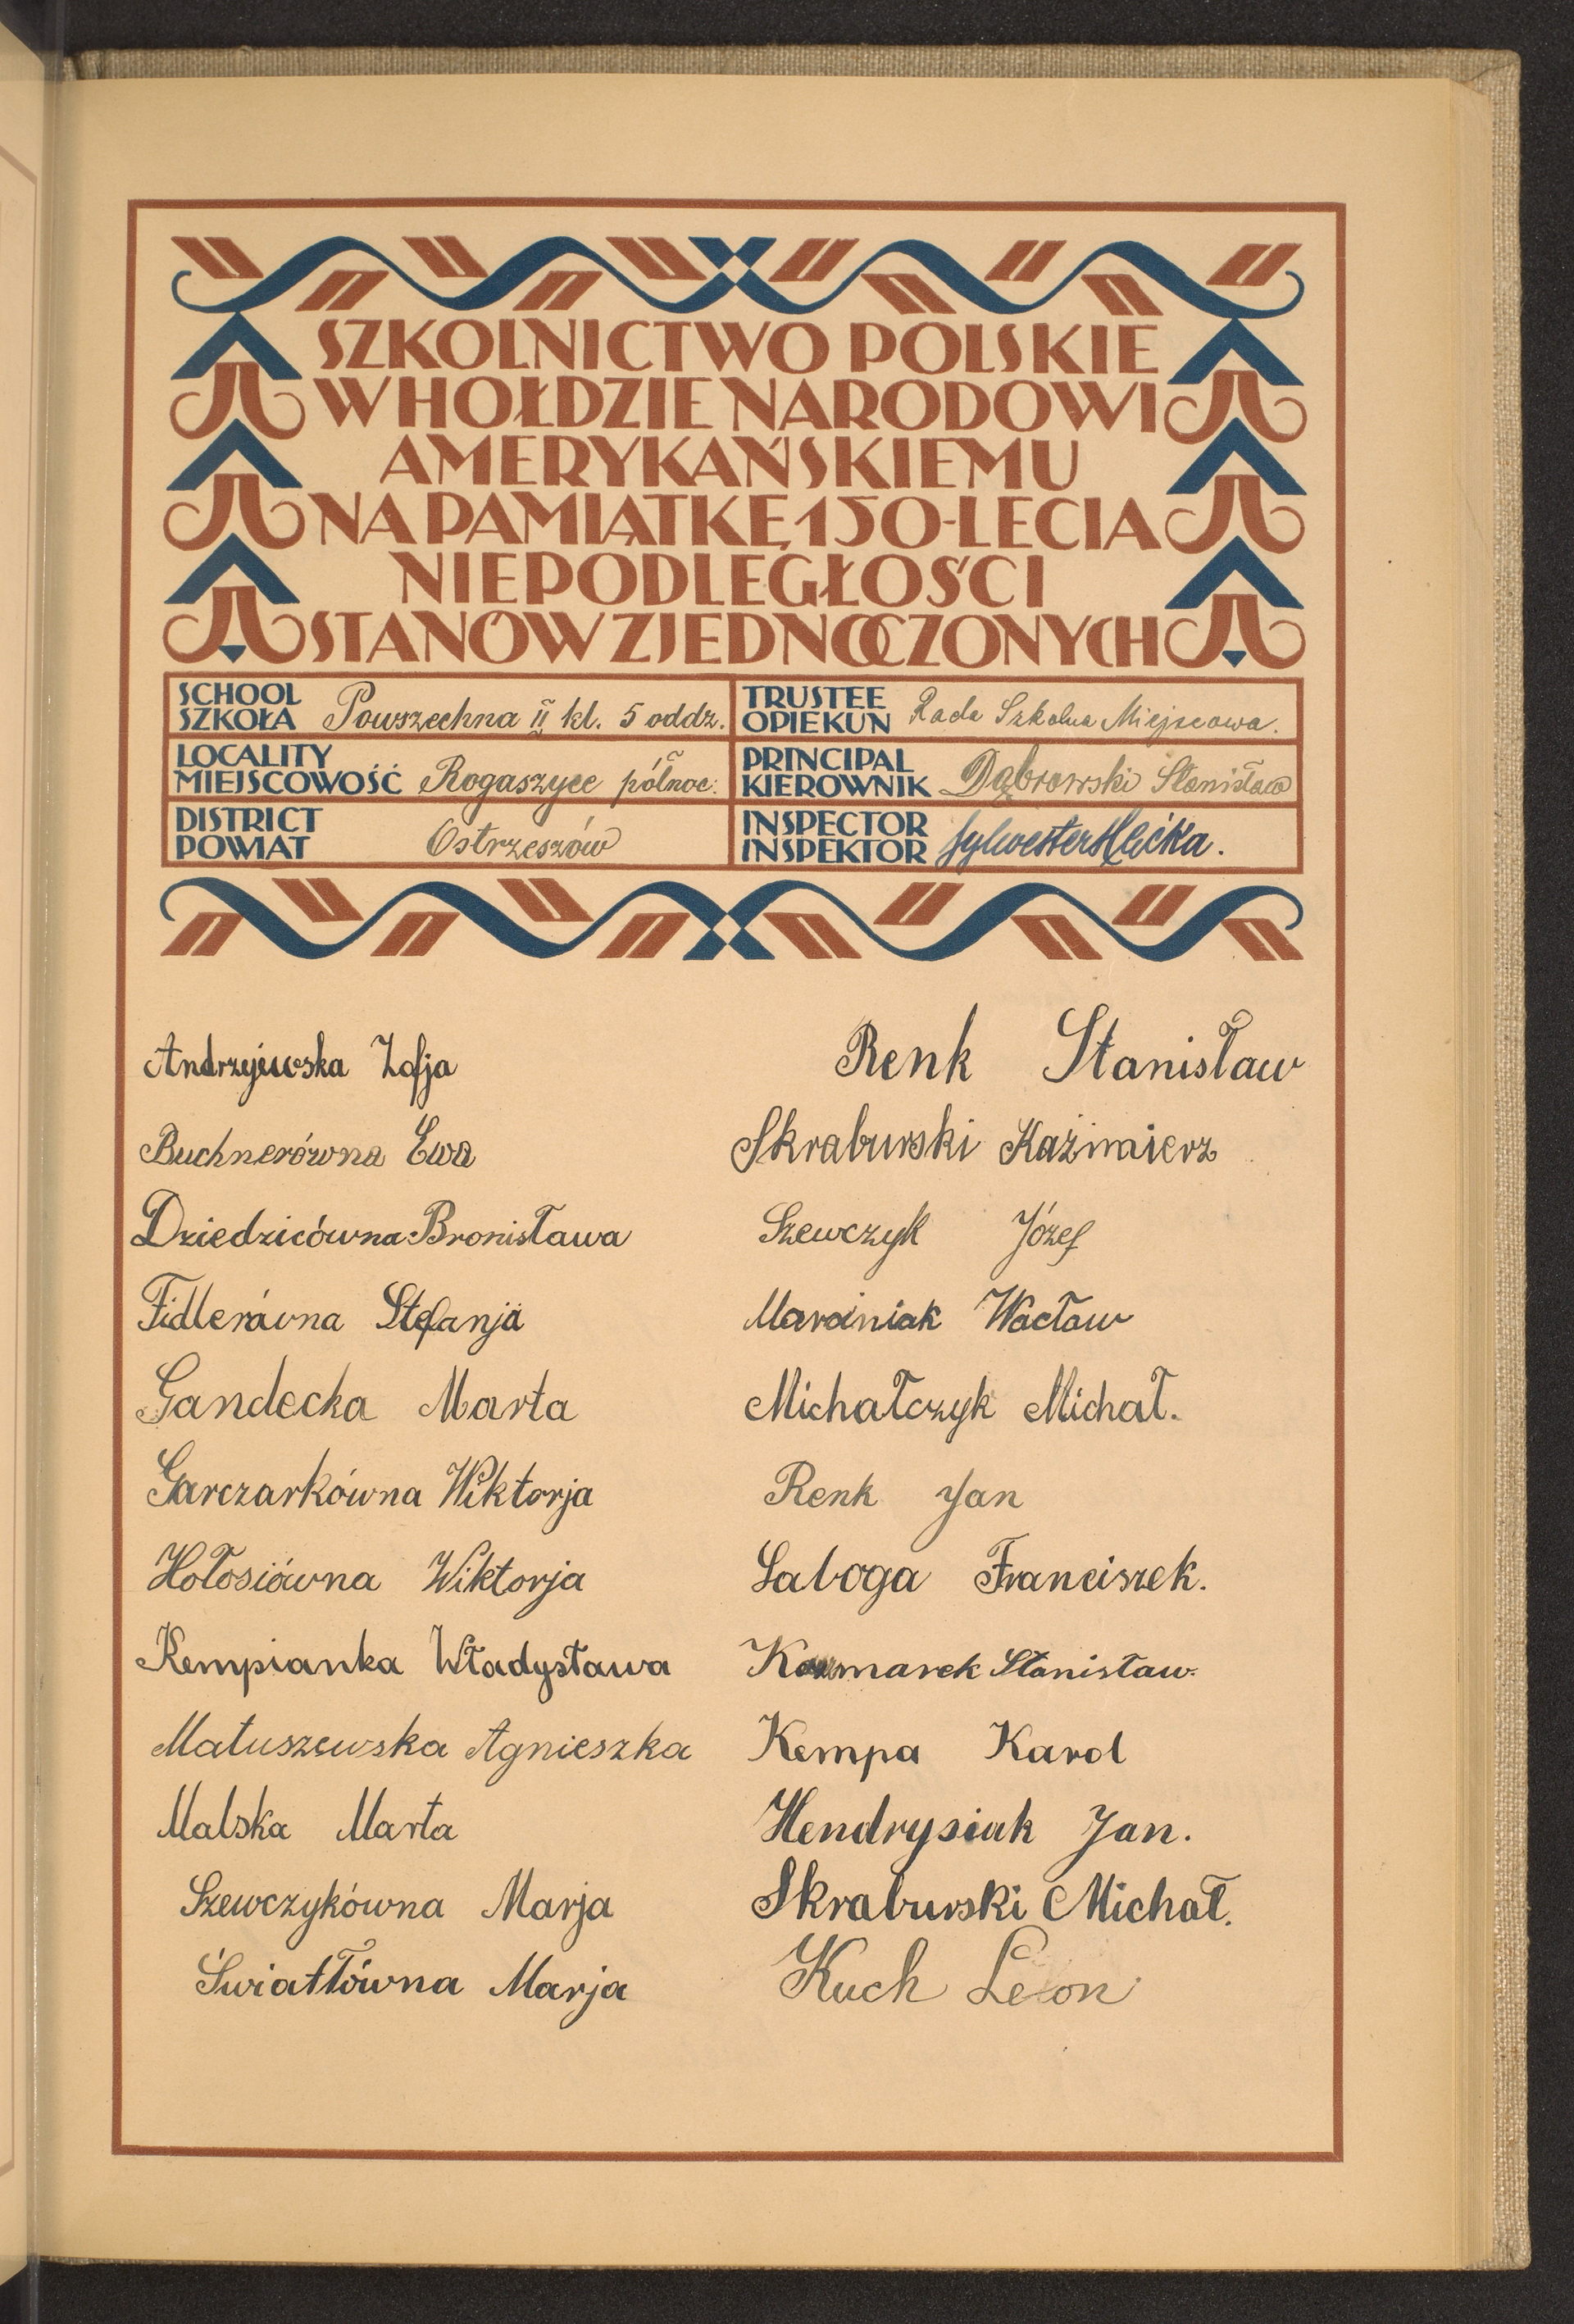 SZKOLNICTWO POLSKIE
W HOŁDZIE NARODOWI
AMERYKAŃSKIEMU
NA PAMIĄTKĘ 150-LECIA
NIEPODLEGŁOŚCI
STANÓW ZJEDNOCZONYCH
SCHOOL
SZKOŁA Powszechna II kl. 5 oddz.
TRUSTEE
OPIEKUN Rada Szkolna Miejscowa.
LOCALITY
MIEJSCOWOŚĆ Rogaszyce północ:
PRINCIPAL
KIEROWNIK Dąbrowski Stanisław
DISTRICT
POWIAT Ostrzeszów
INSPECTOR
INSPEKTOR Sylwester
Andrzejewska Zofja
Buchnerówna Ewa
Dziedzicówna Bronisława
Fidlerówna Stefanja
Gandecka Marta
Garczarkówna Wiktorja
Hołosiówna Wiktorja
Kempianka Władysława
Matuszewska Agnieszka
Malska Marta
Szewczykówna Marja
Światłówna Marja
Renk Stanisław
Skraburski Kaźimierz
Szewczyk Józef
Marciniak Wacław
Michałczyk Michał.
Renk Jan
Saboga Franciszek.
Kaczmarek Stanisław.
Kempa Karol
Hendrysiak Jan.
Skraburski Michał.
Kuch Leon